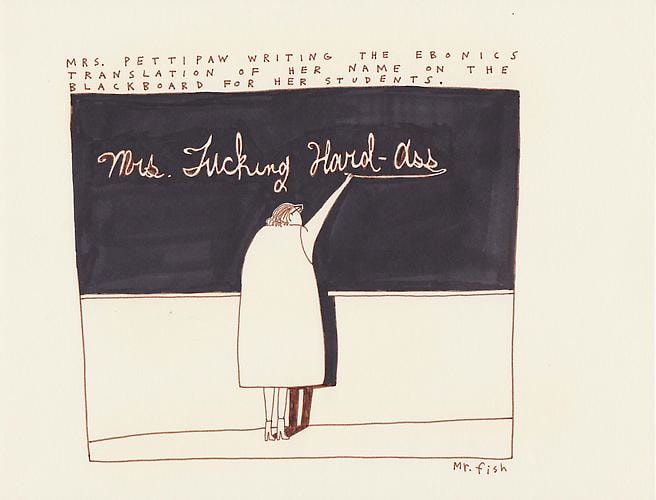 MRS. PETTIPAW WRITING THE EBONICS
TRANSLATION OF HER NAME ON THE
BLACKBOARD FOR HER STUDENTS.
Mrs. Fucking Hard-Ass
Mr. fish